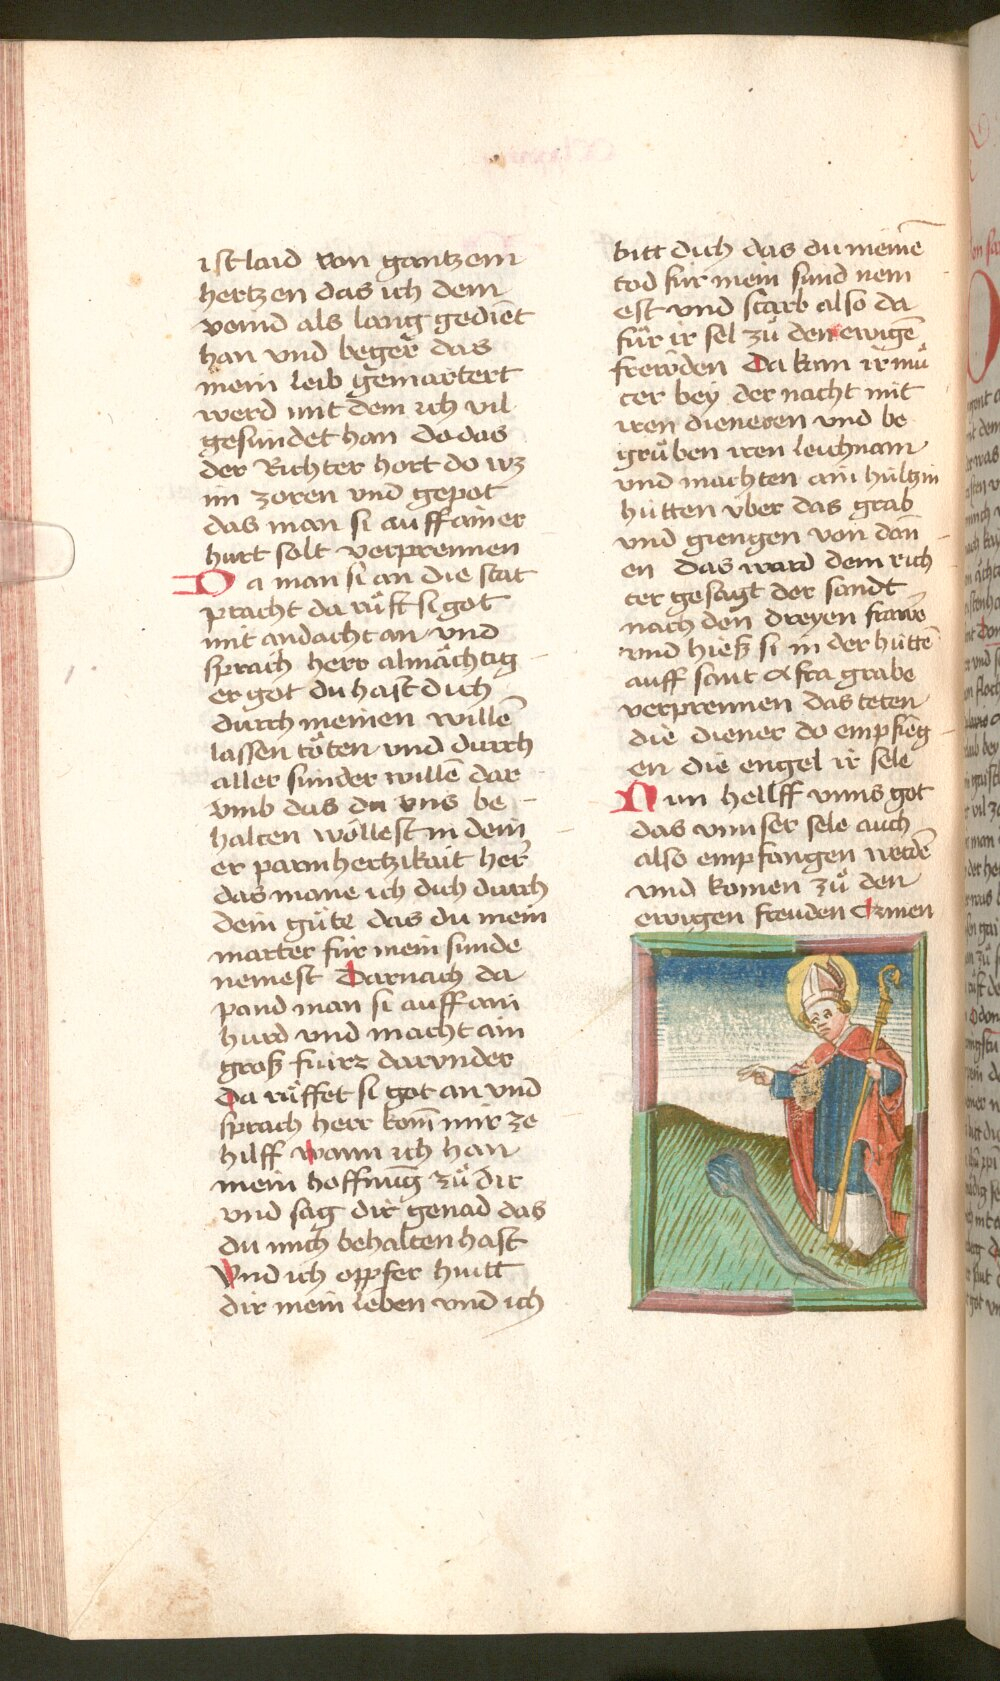 ist laid von gantzem
hertzen das ich dem
veind als lang gedient
han vnd beger das
mein leib gemartert
werd mit dem ich vil
gesündet han do das
der Richter hort do wz
im zoren vnd gepot
das man si auff ainer
hurt solt verprennen
Da man si an die stat
pracht da růft si got
mit andacht an vnd
sprach herr almächtig
er got du hast dich
durch meinen willē
lassen töten vnd durch
aller sünder willē dar
vmb das du vns be
halten wöllest in dein
er parmhertzikait her
das mane ich dich durch
dein güte das du mein
marter für mein sunde
nemest Darnach da
pand man si auff ain
hurd vnd macht ain
groß fürz darvnder
Da růffet si got an vnd
sprach herr kom mir ze
hilff wann ich han
mein hoffnūg zů dir
vnd sag dir genad das
du mich behalten hast
Vnd ich oppfer hüitt
dir mein leben vnd ich
bitt dich das du meinē
tod für mein sünd nem
est vnd starb also da
für ir sel zů den ewigē
frewden Da kam ir mů
ter bey der nacht mit
iren dieneren vnd be
grůben iren leichnam
vnd machten ain hültzin
hütten über das grab
vnd giengen von dan
en das ward dem rich
ter gesagt der sandt
nach den dreyen frawē
vnd hieß si in der hüttē
auff sant Affra grabe
verprennen das teten
die diener do empfieg
en die engel ir sele
Nun hellff vnns got
das vnnser sele auch
also empfangen werdē
vnd komen zů den
ewigen freuden Amen